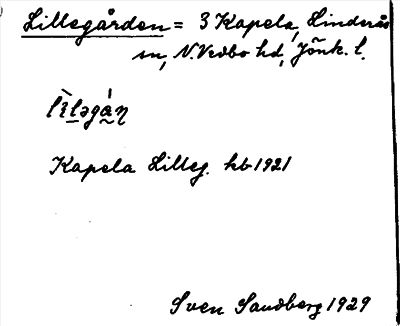 Lillegården = 3 Kapela, Linderås
sn, N. Vedbo hd, Jönk. l.
lìləgán
Kapela Lilleg. hb 1921
Sven Sandberg 1929